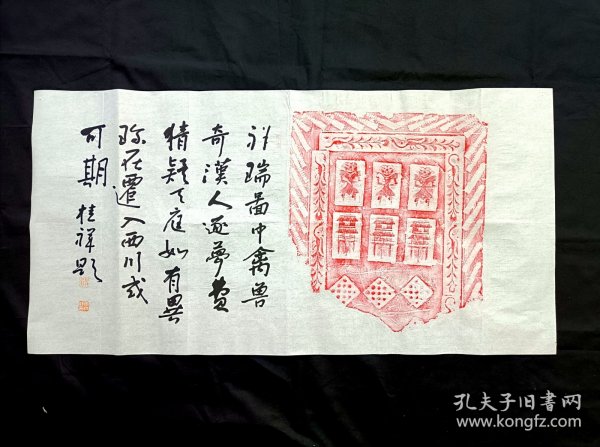 祥瑞圖中禽兽
奇漢人逐夢費
猜疑天庭如有異
珎在遷入西川或
可期 桂祥题
孔夫子旧书网
www.kongfz.com